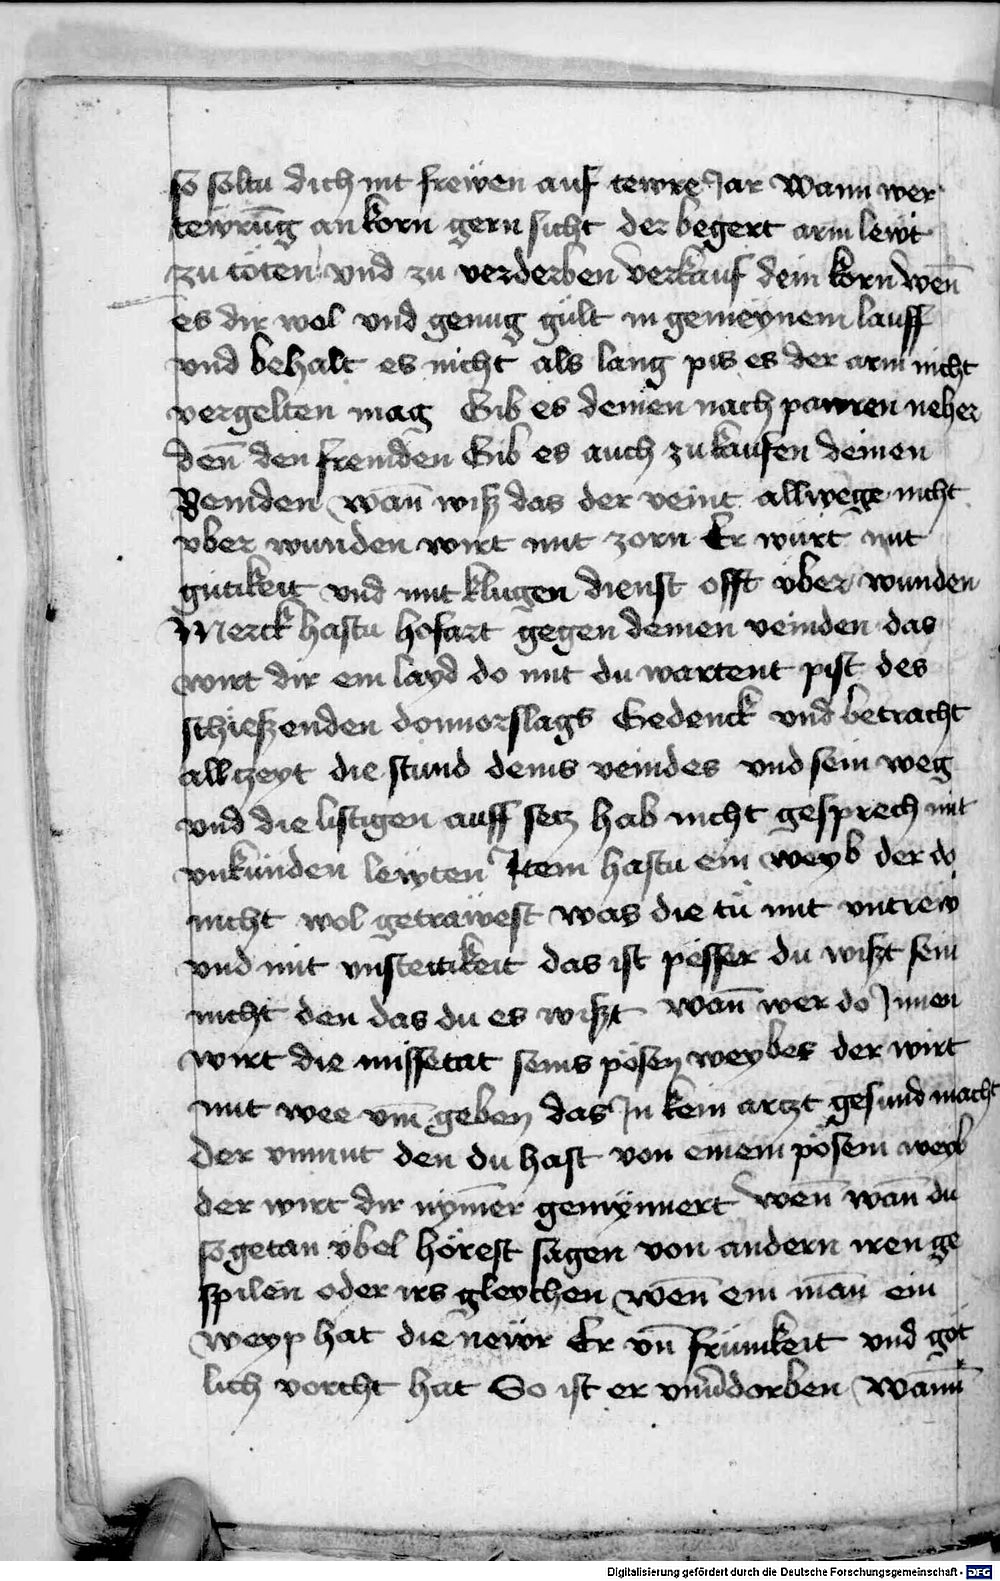 so soltu dich nit frewen auf tewre Jar Wann wer
tewrūg an korn gern sicht der begert arm lewt
zu töten vnd zu verderben verkauf dein korn wen̄
es dir wol vnd genug gült in gemeynem lauff
vnd behalt es nicht als lang pis es der arm nicht
vergelten mag Gib es deinen nach pawren neher
den̄ den fremden Gib es auch zu kaufen deinen
Veinden wan̄ wiß das der veint allwege nicht
vber wunden wirt mit zorn Er würt mit
gütikeit vnd mit klugen dienst offt vber wunden
Merck hastu hofart gegen deinen veinden das
wirt dir ein layd do mit du wartent pist des
schießenden donnorslags Gedenck vnd betracht
allczeyt die stund deins veindes vnd sein weg
vnd die listigen auff secz hab nicht gesprech mit
vnkunden lewten Item hastu ein weyb der do
nicht wol getrawest was die tü mit vntrew
vnd mit vnstetikeit das ist pesser du wißt sein
nicht den das du es wißt wan̄ wer do Jnnen
wirt die missetat seins pösen weybes der wirt
mit wee vm̄ geben das Jn kein arczt gesund macht
Der vnmut den du hast von einem pösem weyb
der wirt dir nym̄er gemynnert wen̄ wan̄ du
sogetan vbel hörest sagen von andern iren ge
spilen oder irs gleychen wen̄ ein man̄ ein
weyp hat die newr Er vn̄ frümkeit vnd got
lich vorcht hat So ist er vnuerdorben Wann
Digitalisierung gefördert durch die Deutsche Forschungsgemeinschaft - DFG